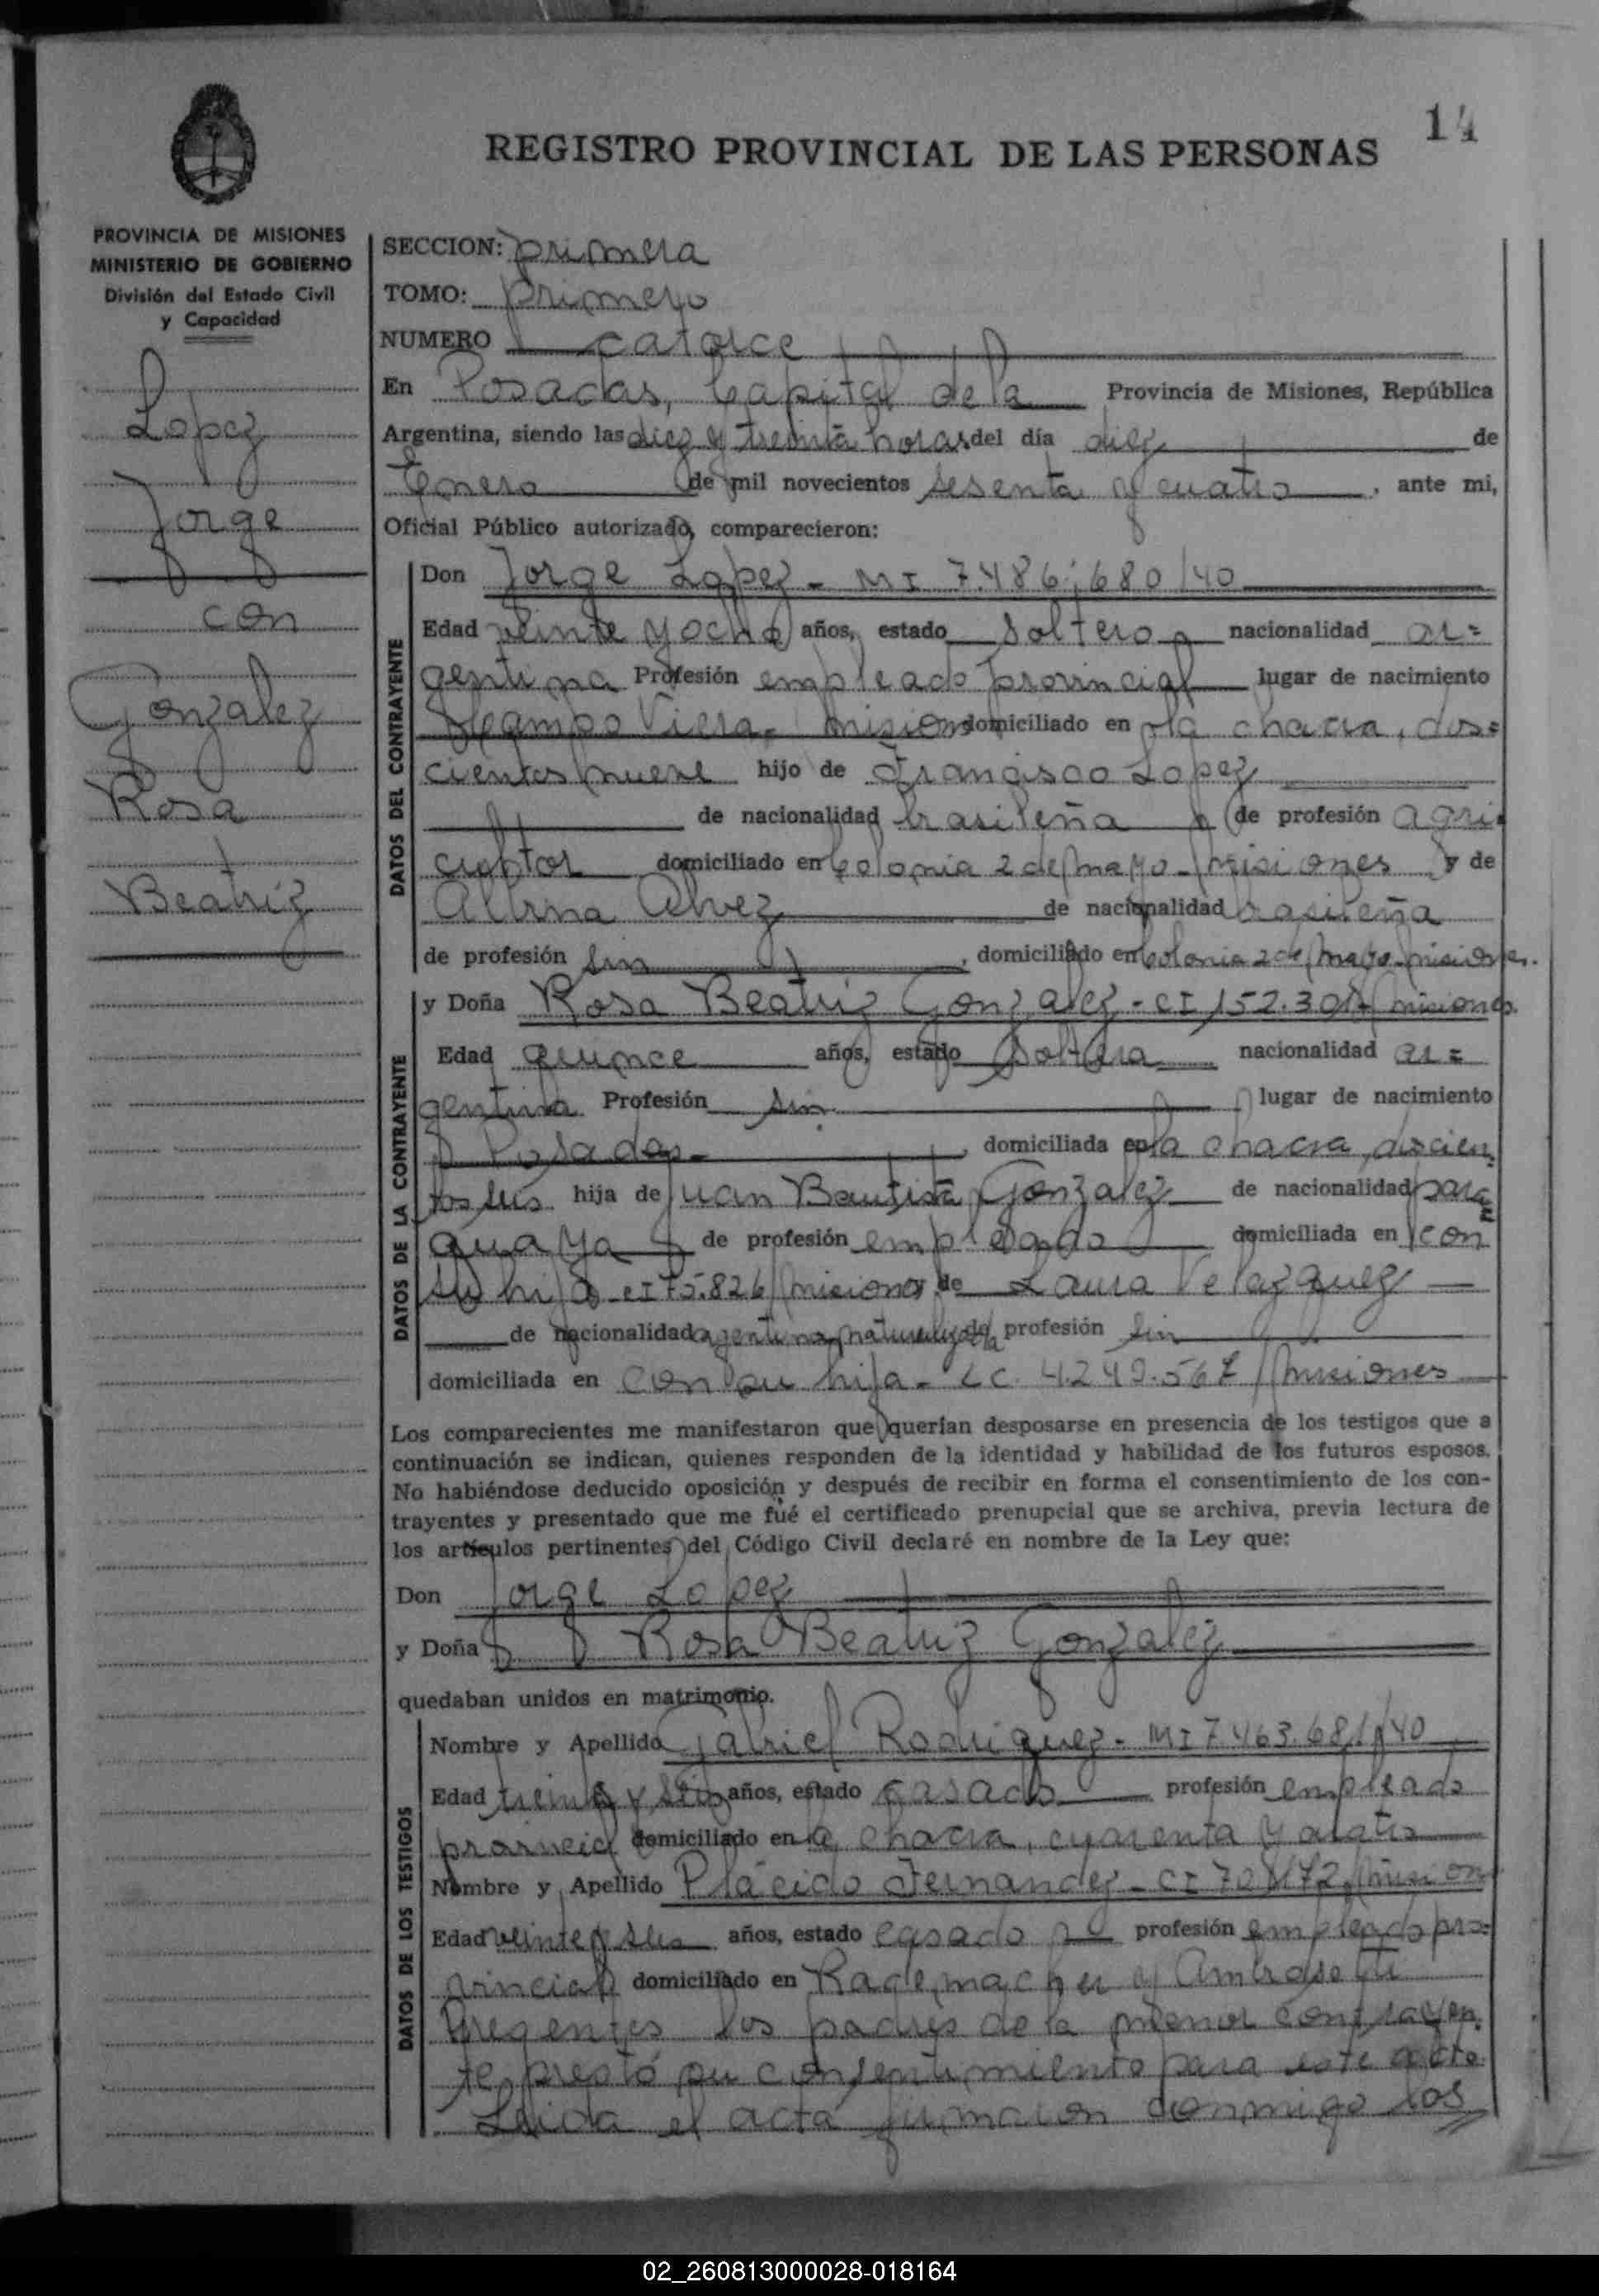 14
REGISTRO PROVINCIAL DE LAS PERSONAS
PROVINCIA DE MISIONES
MINISTERIO DE GOBIERNO
División del Estado Civil
y Capacidad
Lopez
Jorge
con
Gonzalez
Rosa
Beatriz
SECCION: primera
TOMO: primero
NUMERO catorce
En Posadas, Capital de la Provincia de Misiones, República
Argentina, siendo las diez y treinta horas del día diez de
Enero de mil novecientos sesenta y cuatro, ante mi,
Oficial Público autorizado, comparecieron:
DATOS DEL CONTRAYENTE
Don Jorge Lopez - MI 7.486.680/40
Edad veinte y ocho años, estado soltero nacionalidad ar=
gentina Profesión empleado provincial lugar de nacimiento
Campo Viera - Misiones domiciliado en la chacra, dos=
cientos nueve hijo de Francisco Lopez
de nacionalidad brasileña de profesión agri
cultor domiciliado en Colonia 2 de Mayo - Misiones y de
Alvez de nacionalidad brasileña
de profesión sin, domiciliado en Colonia 2 de Mayo Misiones.
DATOS DE LA CONTRAYENTE
y Doña Rosa Beatriz Gonzalez - CI 152.301 Misiones
Edad quince años, estado soltera nacionalidad ar=
gentina Profesión sin lugar de nacimiento
Posadas - domiciliada en la chacra, doscien
tos seis hija de Juan Bautista Gonzalez de nacionalidad para
guaya de profesión empleado domiciliada en con
su hija CI 75.826 Misiones y de Laura Velazquez
de nacionalidad agentina naturalizada de profesión sin
domiciliada en con su hija - LC. 4.249.567 Misiones
Los comparecientes me manifestaron que querían desposarse en presencia de los testigos que a
continuación se indican, quienes responden de la identidad y habilidad de los futuros esposos.
No habiéndose deducido oposición y después de recibir en forma el consentimiento de los con-
trayentes y presentado que me fué el certificado prenupcial que se archiva, previa lectura de
los artículos pertinentes del Código Civil declaré en nombre de la Ley que:
Don Jorge Lopez
y Doña Rosa Beatriz Gonzalez
quedaban unidos en matrimonio.
DATOS DE LOS TESTIGOS
Nombre y Apellido Gabriel Rodriguez - MI 7.463.681/40
Edad treinta y seis años, estado casado profesión empleado
provincial domiciliado en la chacra, cuarenta y cuatro
Nombre y Apellido Plácido Fernandez - CI Misiones
Edad veinte y seis años, estado casado profesión empleado pro=
vincial domiciliado en Rademacher y Ambrosetti
Presentes los padres de la menor contrayen
te prestó su consentimiento para este acto.
Leida el acta firmaron conmigo los
02_260813000028-018164